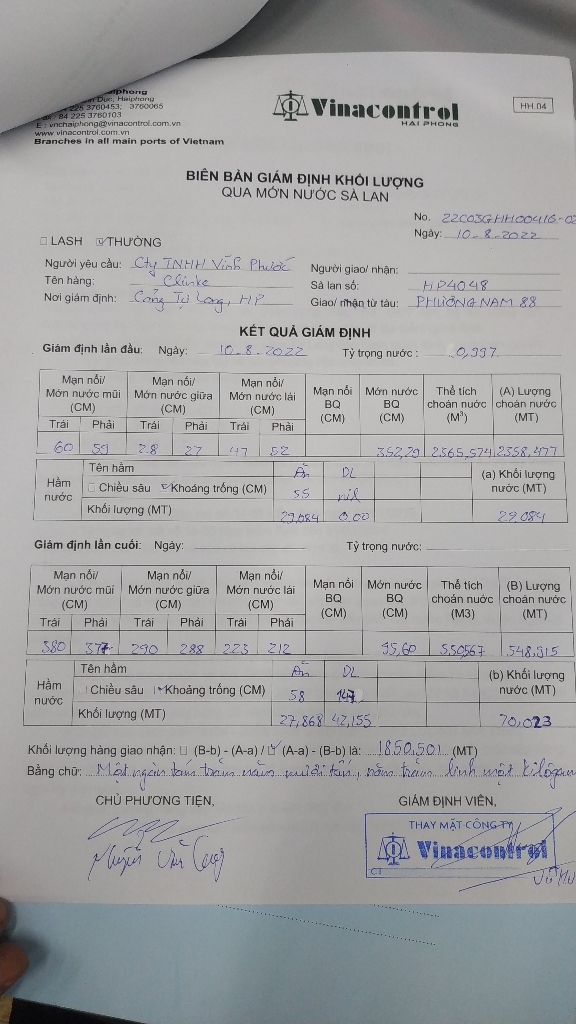 aiphong
n Duc, Haiphong
84 225 3760453; 3760065
Fax: 84 225 3760103
E : vnchaiphong@vinacontrol.com.vn
www.vinacontrol.com.vn
Branches in all main ports of Vietnam
Vinacontrol
HAI PHONG
HH.04
BIÊN BẢN GIÁM ĐỊNH KHỐI LƯỢNG
QUA MỚN NƯỚC SÀ LAN
No. 22C03GHH00416-02
Ngày: 10-8-2022
LASH THƯỜNG
Người yêu cầu: Cty TNHH Vĩnh Phước Người giao/ nhận:
Tên hàng: Clinke Sà lan số: HP4048
Nơi giám định: Cảng Tự Long, HP Giao/ nhận từ tàu: PHƯƠNG NAM 88
KẾT QUẢ GIÁM ĐỊNH
Giám định lần đầu: Ngày: 10-8-2022 Tỷ trọng nước : 0,997
Mạn nổi/ Mớn nước mũi (CM) Mạn nổi/ Mớn nước giữa (CM) Mạn nổi/ Mớn nước lái (CM) Mạn nổi BQ (CM) Mớn nước BQ (CM) Thể tích choán nước (M³) (A) Lượng choán nước (MT)
Trái Phải Trái Phải Trái Phải
60 59 28 27 47 52 352,29 2365,574 2358,477
Hầm nước Tên hầm A2 DL (a) Khối lượng nước (MT)
Chiều sâu Khoảng trống (CM) 55 nil
Khối lượng (MT) 29,084 0,00 29,084
Giám định lần cuối: Ngày: Tỷ trọng nước:
Mạn nổi/ Mớn nước mũi (CM) Mạn nổi/ Mớn nước giữa (CM) Mạn nổi/ Mớn nước lái (CM) Mạn nổi BQ (CM) Mớn nước BQ (CM) Thể tích choán nước (M3) (B) Lượng choán nước (MT)
Trái Phải Trái Phải Trái Phải
380 377 290 288 223 212 95,60 550567 548,915
Hầm nước Tên hầm DL (b) Khối lượng nước (MT)
Chiều sâu Khoảng trống (CM) 58 147
Khối lượng (MT) 27,868 42,155 70,023
Khối lượng hàng giao nhận: (B-b) - (A-a) / (A-a) - (B-b) là: 1850,501 (MT)
Bằng chữ: Một ngàn tám trăm năm mươi tấn, năm trăm linh một kilôgam
CHỦ PHƯƠNG TIỆN, GIÁM ĐỊNH VIÊN,
THAY MẶT CÔNG TY
Vinacontrol